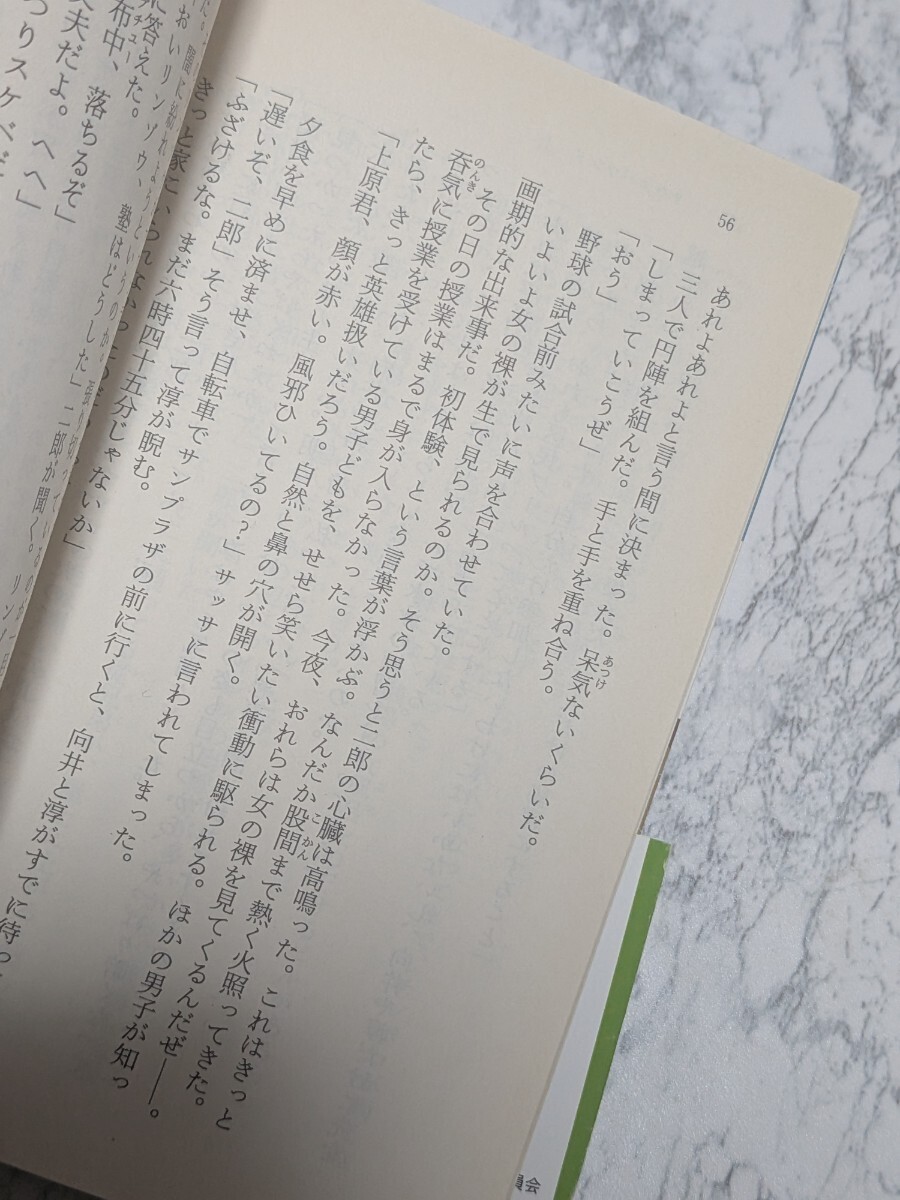 56
あれよあれよと言う間に決まった。呆気ないくらいだ。
三人で円陣を組んだ。手と手を重ね合う。
「しまっていこうぜ」
「おう」
野球の試合前みたいに声を合わせていた。
いよいよ女の裸が生で見られるのか。そう思うと二郎の心臓は高鳴った。これはきっと
画期的な出来事だ。初体験、という言葉が浮かぶ。なんだか股間まで熱く火照ってきた。
その日の授業はまるで身が入らなかった。今夜、おれらは女の裸を見てくるんだぜ――。
呑気に授業を受けている男子どもを、せせら笑いたい衝動に駆られる。ほかの男子が知っ
たら、きっと英雄扱いだろう。自然と鼻の穴が開く。
「上原君、顔が赤い。風邪ひいてるの？」サッサに言われてしまった。
夕食を早めに済ませ、自転車でサンプラザの前に行くと、向井と淳がすでに待っ
「遅いぞ、二郎」そう言って淳が睨む。
「ふざけるな。まだ六時四十五分じゃないか」
きっと家に
おいリンゾウ、塾はどうした」二郎が聞く。リン
に答えた。
布中、落ちるぞ」
丈夫だよ。へへ」
つりスケベだ
員会